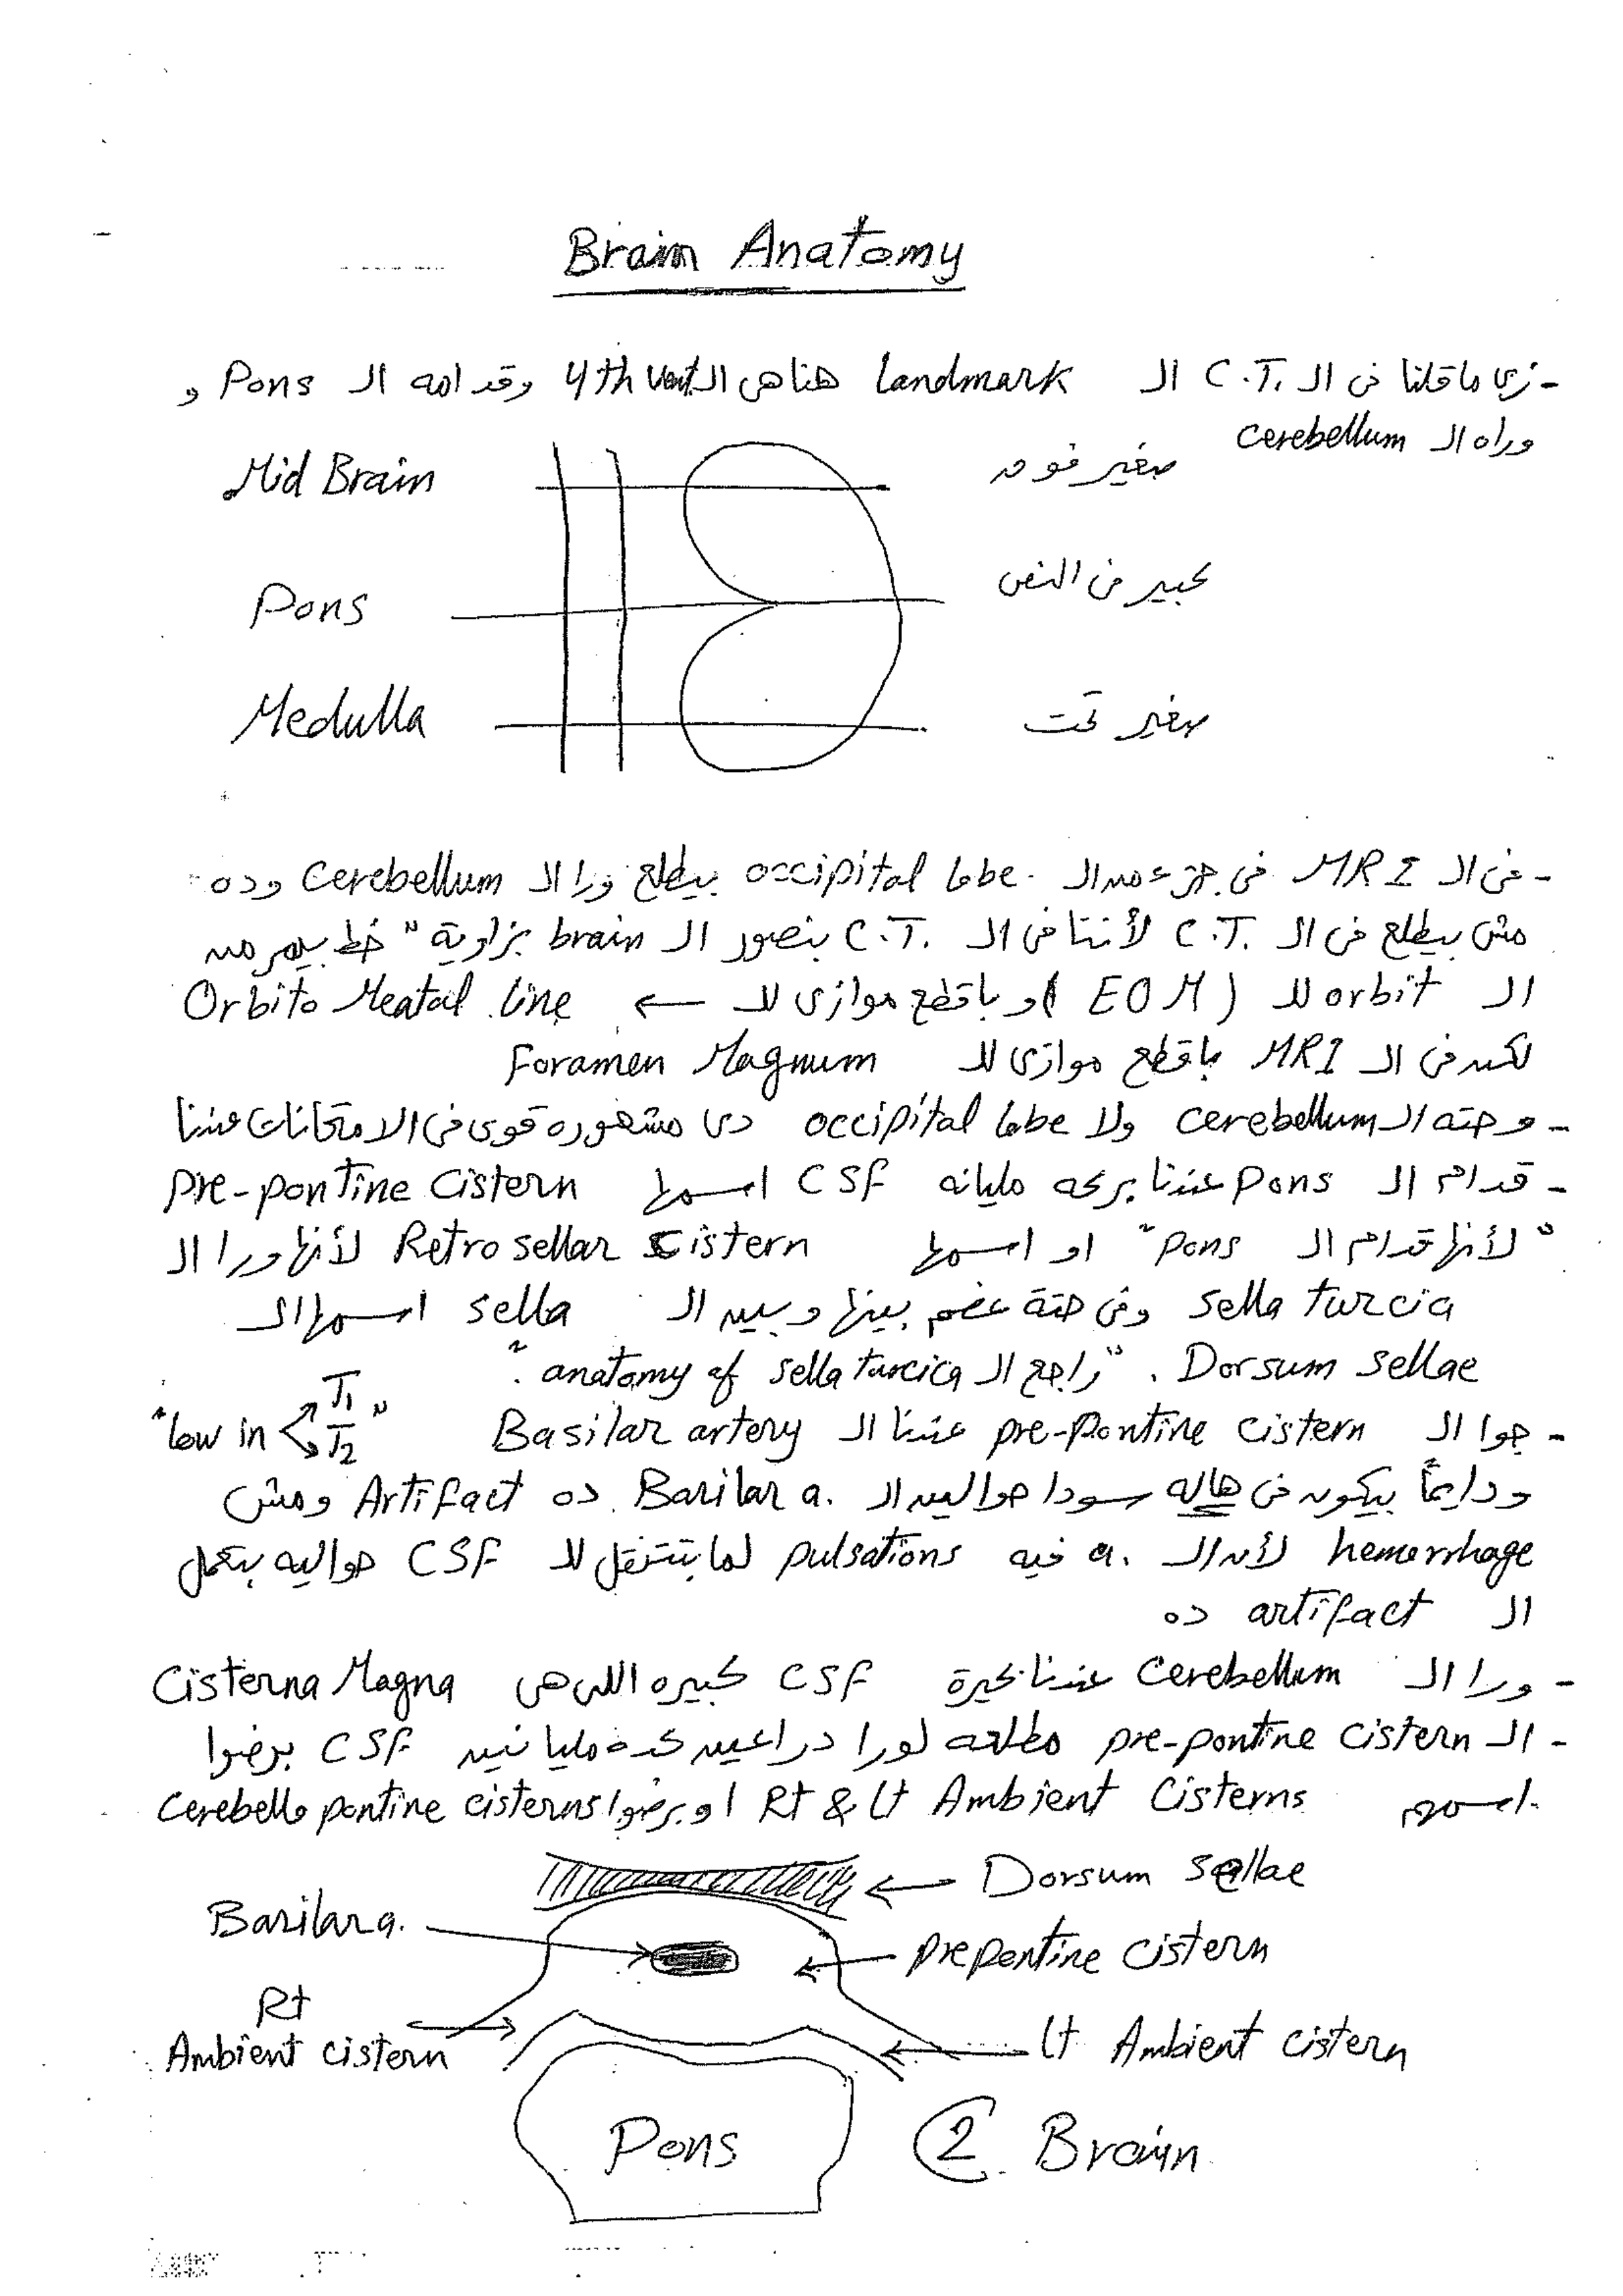 Brain Anatomy
- زى ما قلنا فى الـ C.T. الـ Landmark هنا هى الـ 4th Vent. وقدامه الـ Pons و
وراه الـ Cerebellum
Mid Brain صغير فوق
Pons كبير فى النص
Medulla صغير تحت
- فى الـ MRI فى جزء من الـ occipital lobe بيطلع ورا الـ Cerebellum وده
مش بيطلع فى الـ C.T. لأننا فى الـ C.T. بنصور الـ brain بزاوية " خط بيمر من
الـ orbit للـ (EOM) او باقطع موازى للـ ← Orbito Meatal line
لكن فى الـ MRI باقطع موازى للـ Foramen Magnum
- وحته الـ Cerebellum ولا occipital lobe دى مشهوره قوى فى الامتحانات عندنا
- قدام الـ Pons عندنا بركه مليانه CSF اسمها Pre-pontine Cistern
" لأنها قدام الـ Pons " او اسمها Retro sellar Cistern لأنها ورا الـ
Sella turcia وفى حتة عضم بينها وبين الـ sella اسمها الـ
Dorsum sellae . " راجع الـ anatomy of sella turcica " .
- جوا الـ pre-Pontine cistern عندنا الـ Basilar artery "low in T1 T2"
ودايمًا بيكون فى هاله سودا حوالين الـ Basilar a. ده Artifact ومش
hemorrhage لأن الـ a. فيه pulsations لما بتتنقل للـ CSF حواليه بتعمل
الـ artifact ده
- ورا الـ Cerebellum عندنا بحيرة CSF كبيره اللى هى Cisterna Magna
- الـ pre-pontine cistern مطلعه لورا دراعين كده مليانين CSF برضوا
اسمهم Rt & Lt Ambient Cisterns او برضوا Cerebello pontine cisterns
Dorsum Sellae
Basilar a.
Prepontine cistern
Rt
Ambient cistern
Lt Ambient cistern
Pons
2 Brain